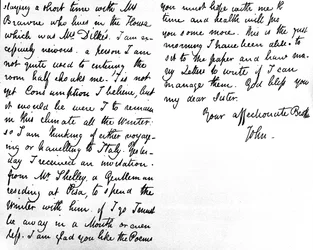 staying a short time with Mrs
Brawne who lives in the House
which was Mrs Dilke's. I am ex
cessively nervous: a person I am
not quite used to entering the
room half choaks me. 'T is not
yet Consumption I believe, but
it would be were I to remain
in this climate all the Winter:
so I am thinking of either voyag-
ing or travelling to Italy. Yester-
day I received an invitation
from Mr Shelley, a Gentleman
residing at Pisa, to spend the
Winter with him. if I go I must
be away in a Month or even
less. I am glad you like the Poems
you must hope with me that
time and health will pro
you some more. This is the first
morning I have been able to
sit to the paper and have ma
ny Letters to write if I can
manage them. God bless you
my dear Sister.
Your affectionate Bro
John